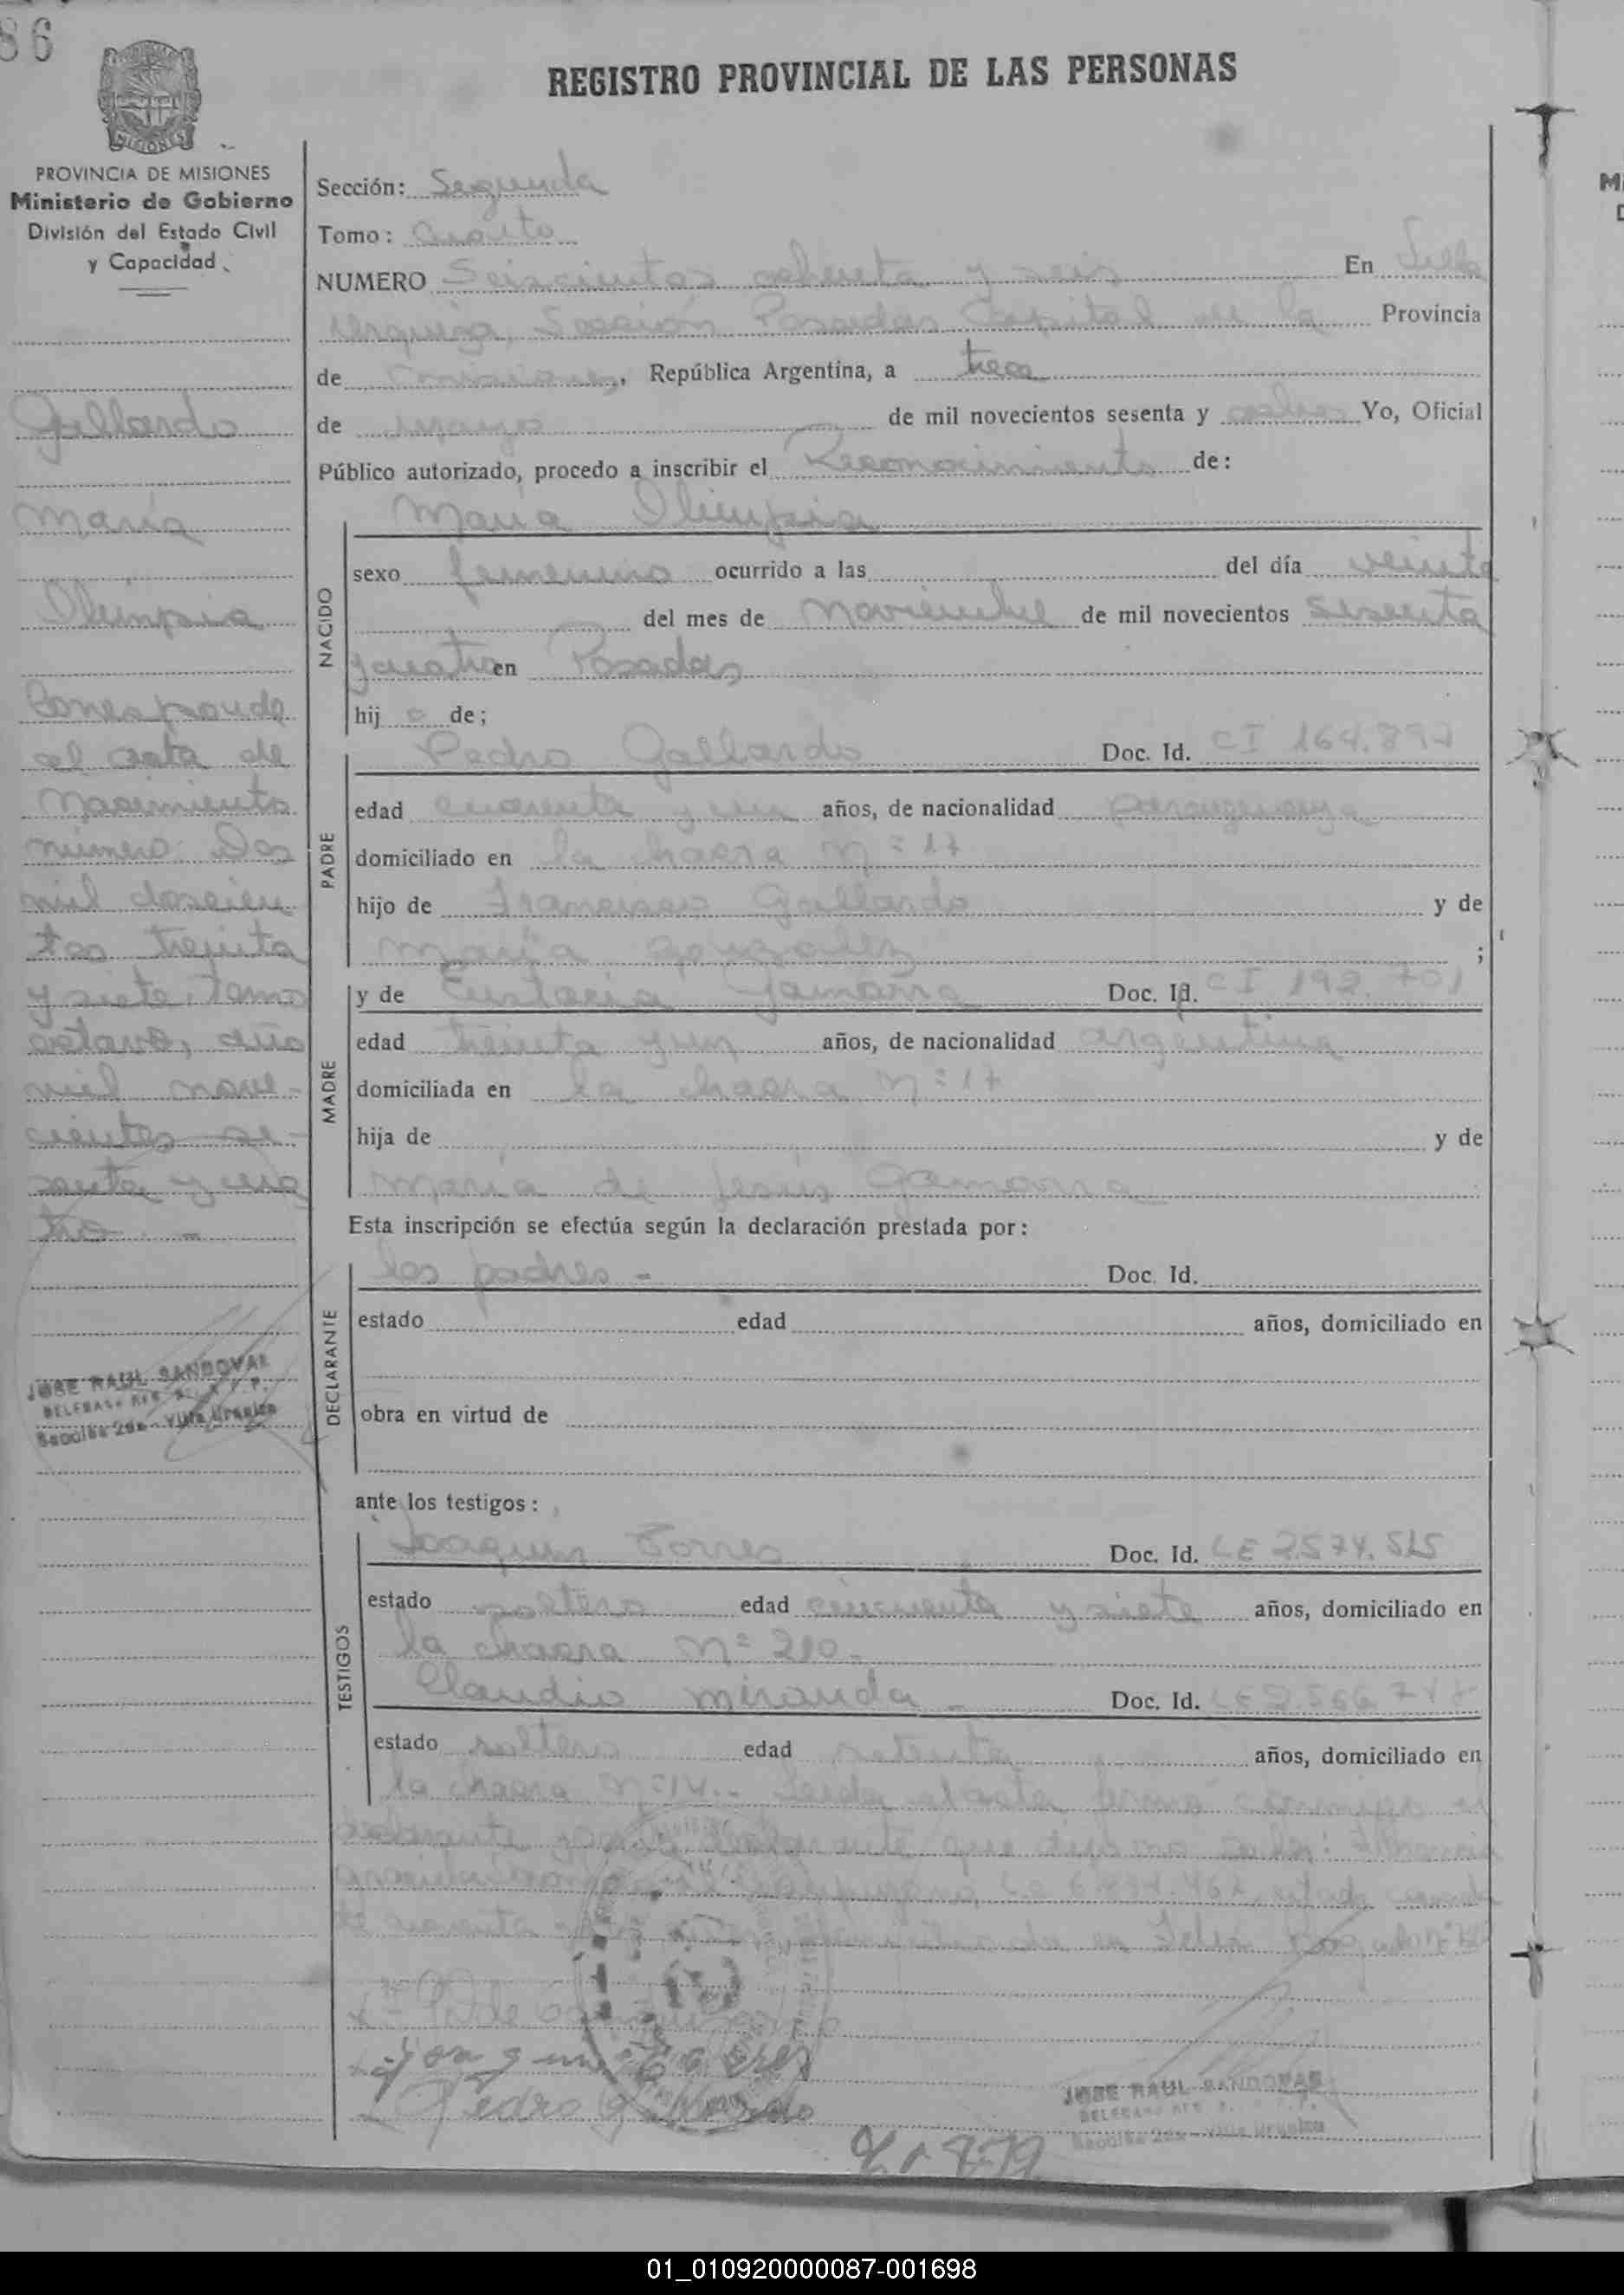 86
REGISTRO PROVINCIAL DE LAS PERSONAS
MISIONES
PROVINCIA DE MISIONES
Ministerio de Gobierno
División del Estado Civil
y Capacidad
Gallardo
María
Olimpia
Corresponde
al acta de
Nacimiento
número Dos
mil doscien
tos treinta
y siete, tomo
octavo, año
mil nove-
cientos se-
senta y cua
tro. -
JOSE RAUL SANDOVAL
Sección 2da - Villa Urquiza
Sección: Segunda
Tomo: Cuarto
NUMERO Seiscientos ochenta y seis En Villa
Urquiza, Sección Posadas Capital de la Provincia
de Misiones, República Argentina, a trece
de mayo de mil novecientos sesenta y ocho Yo, Oficial
Público autorizado, procedo a inscribir el Reconocimiento de:
María Olimpia
NACIDO
sexo femenino ocurrido a las del día veinte
del mes de Noviembre de mil novecientos sesenta
y cuatro en Posadas
hij o de;
PADRE
Pedro Gallardo Doc. Id. CI 164.897
edad cuarenta y un años, de nacionalidad paraguaya
domiciliado en la chacra N° 17
hijo de Francisco Gallardo y de
María González ;
MADRE
y de Eustacia Gamarra Doc. Id. CI 192.701
edad treinta y un años, de nacionalidad argentina
domiciliada en la chacra N° 17
hija de y de
María de Jesús Gamarra
Esta inscripción se efectúa según la declaración prestada por:
DECLARANTE
los padres - Doc. Id.
estado edad años, domiciliado en
obra en virtud de
ante los testigos:
TESTIGOS
Joaquin Torres Doc. Id. LE 2.574.515
estado soltero edad cincuenta y siete años, domiciliado en
la chacra N° 210.
Claudio Miranda - Doc. Id. LE 2.566.747
estado soltero edad setenta años, domiciliado en
la chacra N° 14.- Leida el acta firma conmigo el
que dijo no
estado casado
de cuarenta en Felix
Joaquin Torres
Pedro Gallardo
JOSE RAUL SANDOVAL
Sección 2da - Villa Urquiza
01_010920000087-001698